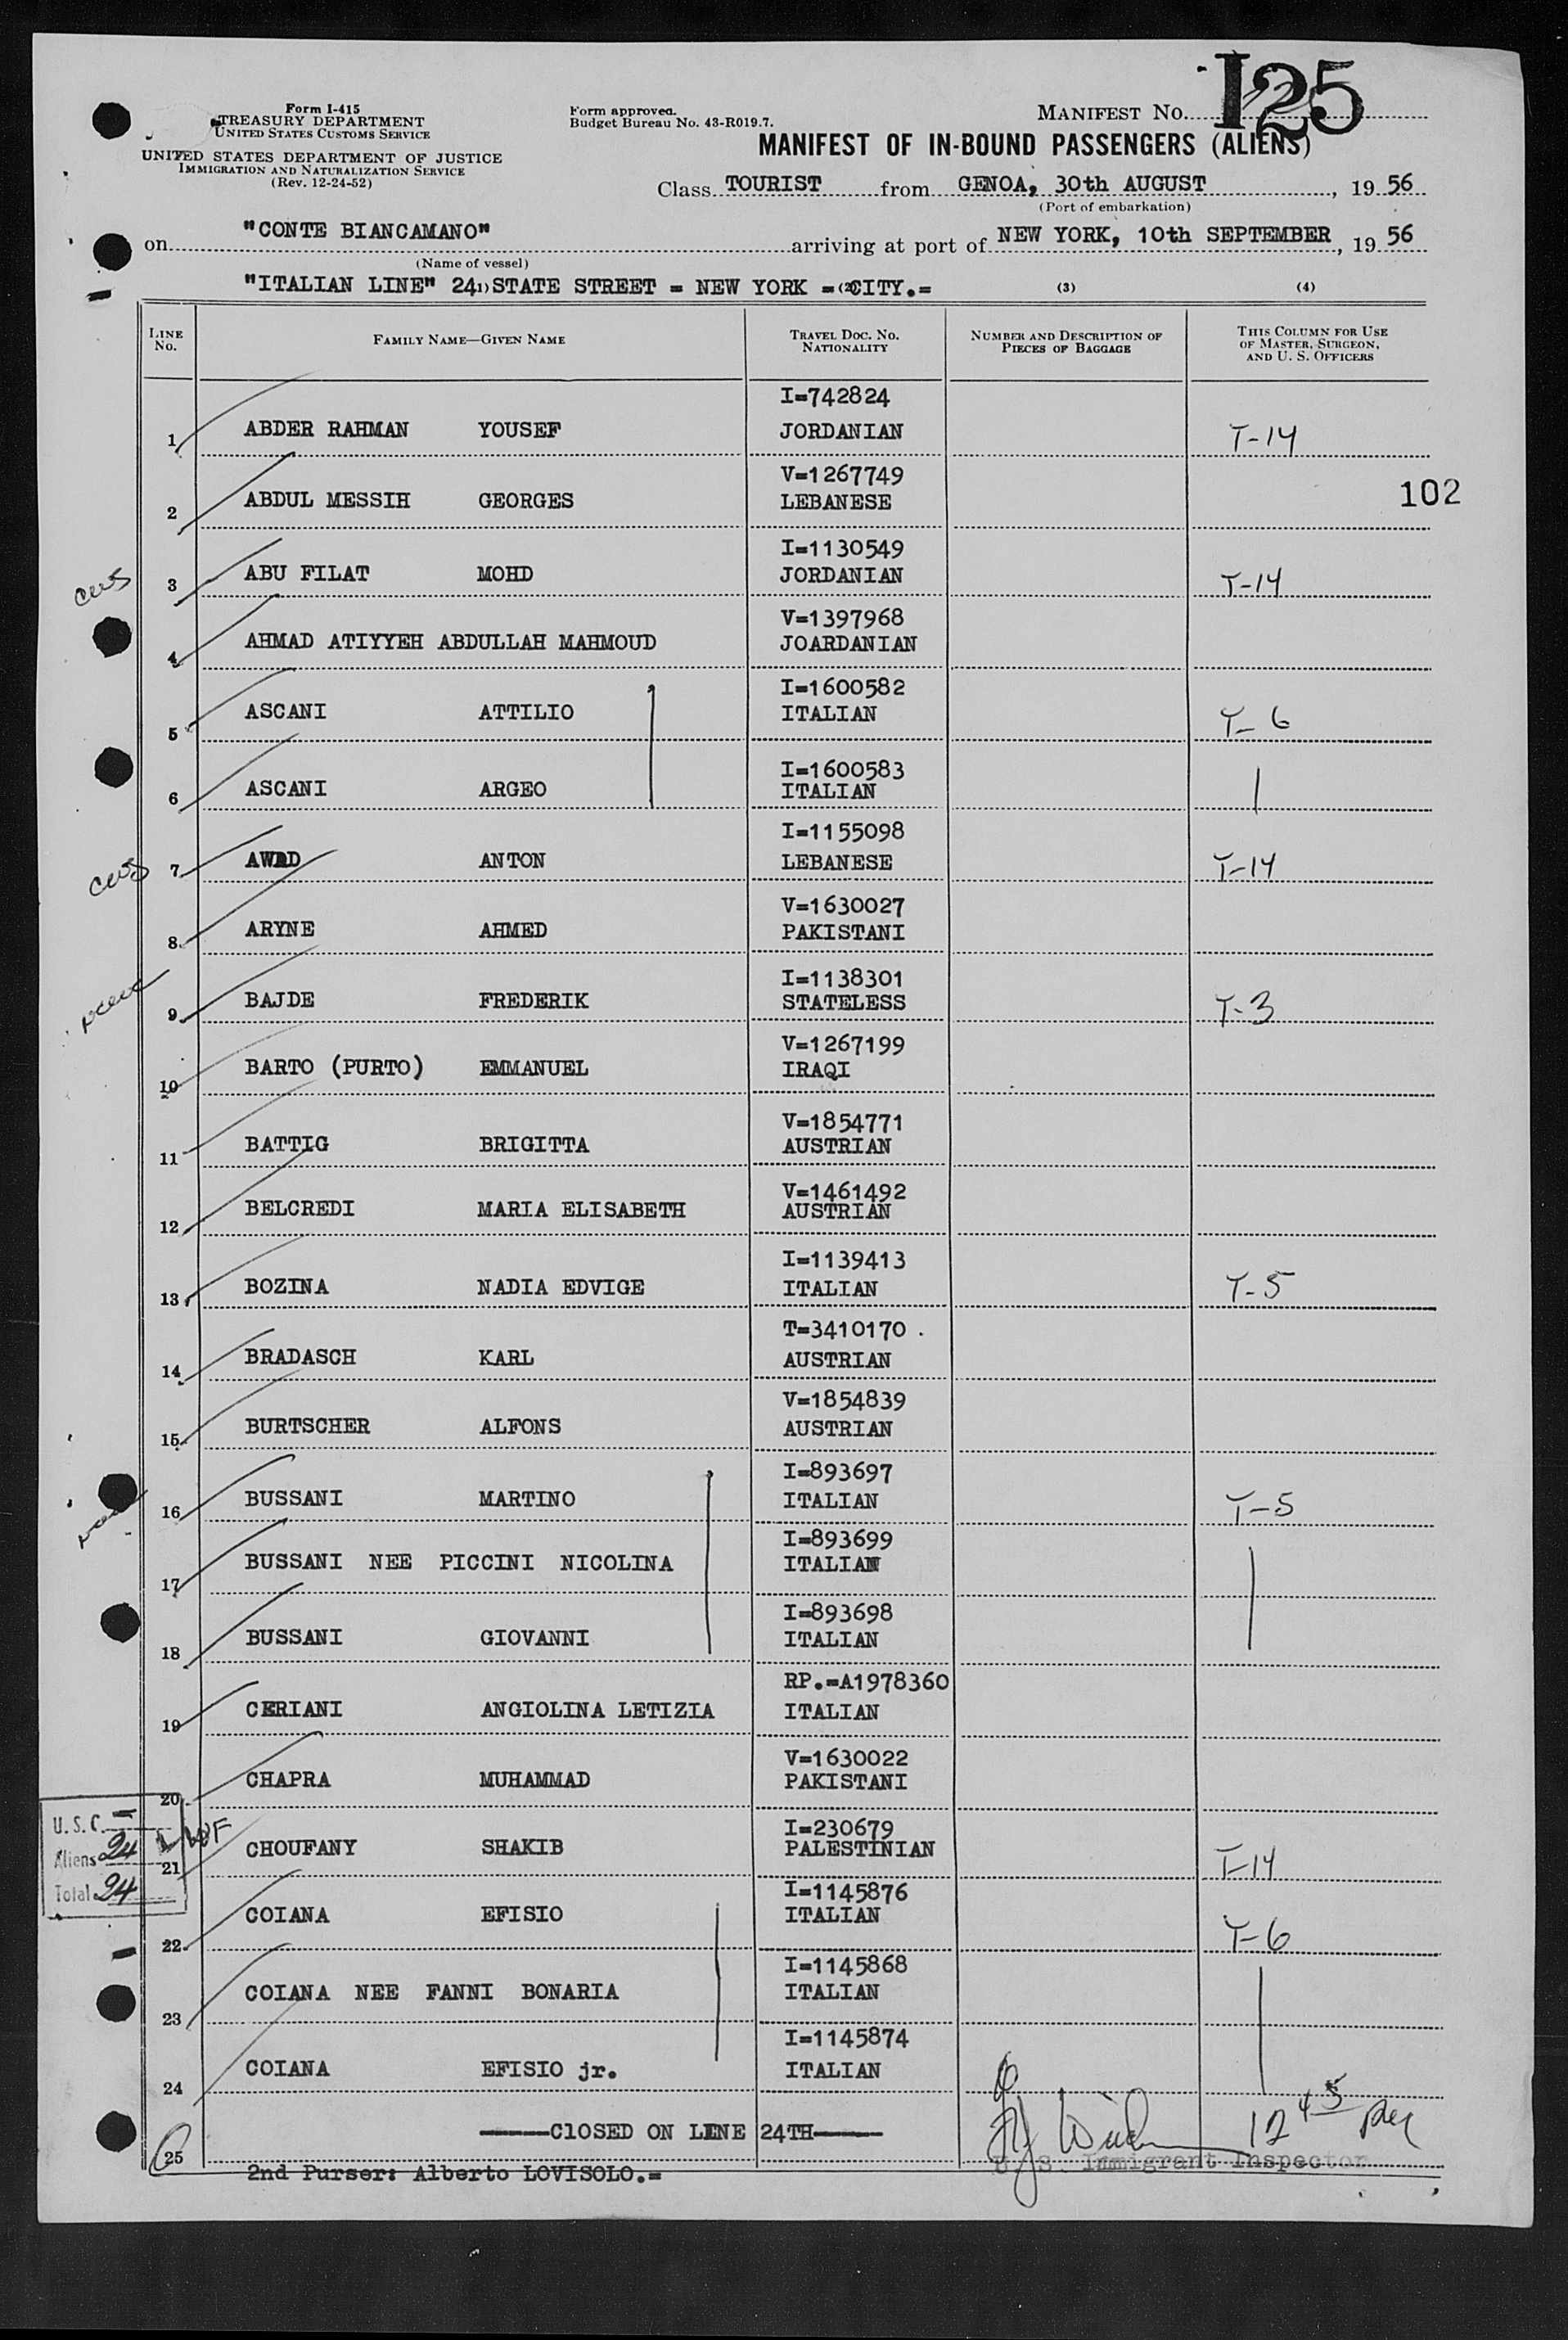 I25
Form I-415
TREASURY DEPARTMENT
UNITED STATES CUSTOMS SERVICE
UNITED STATES DEPARTMENT OF JUSTICE
IMMIGRATION AND NATURALIZATION SERVICE
(Rev. 12-24-52)
Form approved.
Budget Bureau No. 43-R019.7.
MANIFEST NO.
MANIFEST OF IN-BOUND PASSENGERS (ALIENS)
Class TOURIST from GENOA, 30th AUGUST, 19 56
(Port of embarkation)
on "CONTE BIANCAMANO" arriving at port of NEW YORK, 10th SEPTEMBER, 19 56
(Name of vessel)
"ITALIAN LINE" 24 (1) STATE STREET = NEW YORK = (2) CITY.= (3) (4)
LINE NO. FAMILY NAME—GIVEN NAME TRAVEL DOC. NO. NATIONALITY NUMBER AND DESCRIPTION OF PIECES OF BAGGAGE THIS COLUMN FOR USE OF MASTER, SURGEON, AND U. S. OFFICERS
I=742824
1 ABDER RAHMAN YOUSEF JORDANIAN T-14
V=1267749
2 ABDUL MESSIH GEORGES LEBANESE
102
I=1130549
3 ABU FILAT MOHD JORDANIAN T-14
V=1397968
4 AHMAD ATIYYEH ABDULLAH MAHMOUD JOARDANIAN
I=1600582
5 ASCANI ATTILIO ITALIAN T-6
I=1600583
6 ASCANI ARGEO ITALIAN
I=1155098
7 ANTON LEBANESE T-14
V=1630027
8 ARYNE AHMED PAKISTANI
I=1138301
9 BAJDE FREDERIK STATELESS T-3
V=1267199
10 BARTO (PURTO) EMMANUEL IRAQI
V=1854771
11 BATTIG BRIGITTA AUSTRIAN
V=1461492
12 BELCREDI MARIA ELISABETH AUSTRIAN
I=1139413
13 BOZINA NADIA EDVIGE ITALIAN T-5
T=3410170 .
14 BRADASCH KARL AUSTRIAN
V=1854839
15 BURTSCHER ALFONS AUSTRIAN
I=893697
16 BUSSANI MARTINO ITALIAN T-5
I=893699
17 BUSSANI NEE PICCINI NICOLINA ITALIAN
I=893698
18 BUSSANI GIOVANNI ITALIAN
RP.=A1978360
19 CERIANI ANGIOLINA LETIZIA ITALIAN
V=1630022
20 CHAPRA MUHAMMAD PAKISTANI
U. S. C. —
Aliens 24
Total 24
I=230679
21 CHOUFANY SHAKIB PALESTINIAN T-14
I=1145876
22 COIANA EFISIO ITALIAN T-6
I=1145868
23 COIANA NEE FANNI BONARIA ITALIAN
I=1145874
24 COIANA EFISIO jr. ITALIAN
25 ClOSED ON LINE 24TH
12 45
U. S. Immigrant Inspector
2nd Purser: Alberto LOVISOLO.=